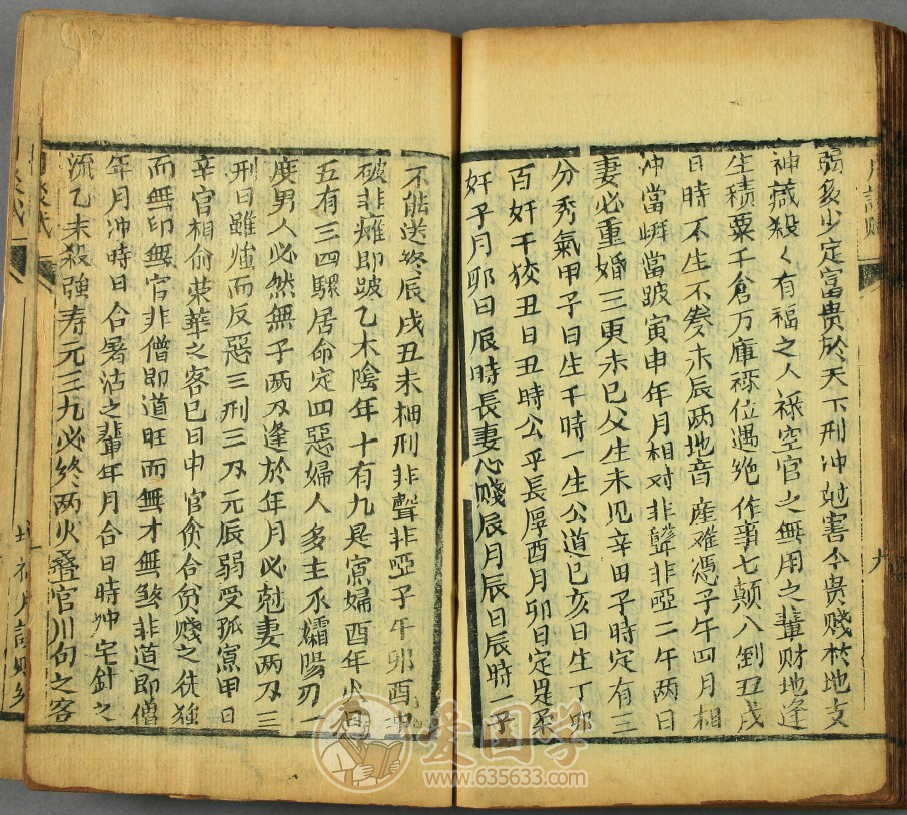 弱多少定富貴於天下刑冲尅害今貴賤於地支
神藏殺〻有福之人禄空官之無用之輩财地逢
生積粟千倉万庫禄位遇绝作事七颠八倒丑戌
日時不生不發未辰两地音產难憑子午四月相
冲當嶼當跛寅申年月相对非聾非啞二午两日
妻必重婚三更未巳父生未见辛田子時定有三
分秀氣甲子日生千時一生公道巳亥日生丁卯
百奸千狡丑日丑時公乎長厚酉月卯日定是柔
奸子月卯日辰時長妻心賤辰月辰日辰時一子
不能送终辰戌丑未相刑非聾非啞子午卯酉中
破非癱即跛乙木陰年十有九是寡婦酉年火
五有三四驛居命定四惡婦人多主不孀陽刃一
度男人必然無子两刃逢於年月必尅妻两刃三
刑日雖強而反惡三刑三刃元辰弱受孤寡甲日
辛官相俞荣華之客巳日申官貪合贫賤之徒強
而無印無官非僧即道旺而無才無煞非道即僧
年月冲時日合屠沽之輩年月合日時冲宅針之
流乙未殺強寿元三九必终两火叠官川句之客
九
爱国学
www.635633.com